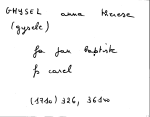 GHYSEL anna therese
(gysele)
fa jan baptiste
fs carel
(1710) 326, 36140